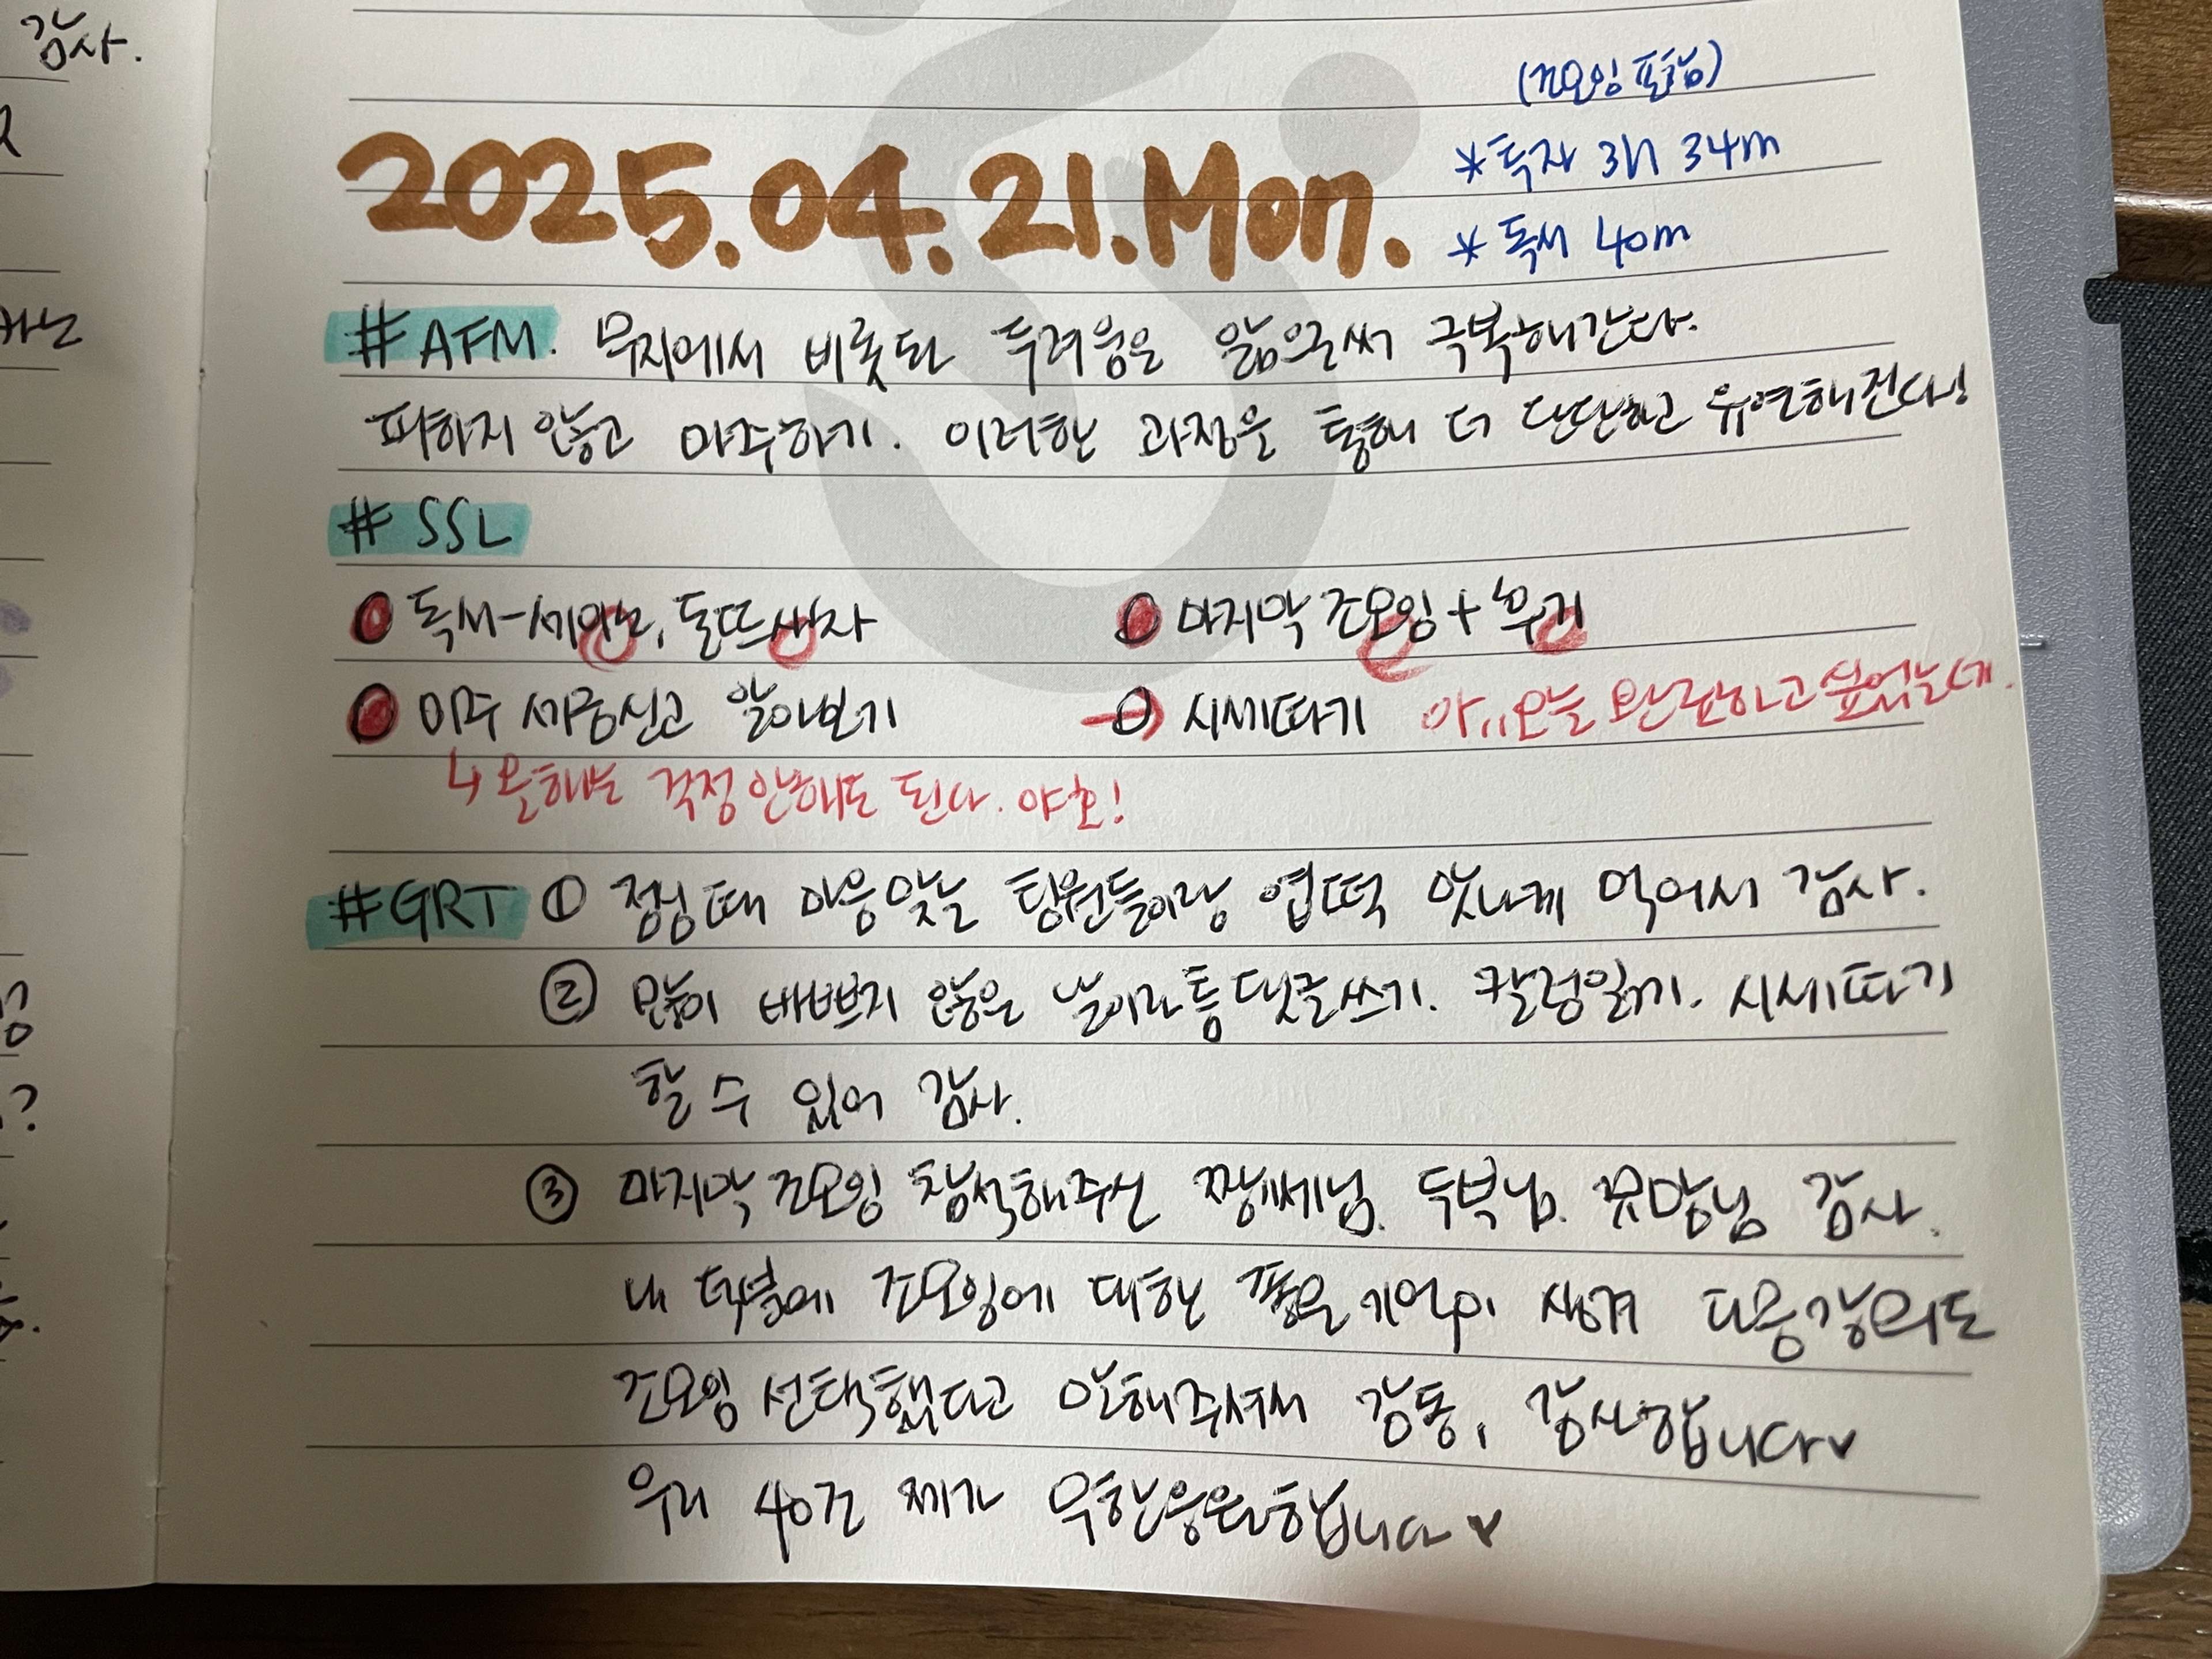 감사.
(조모임 포함)
2025.04.21.Mon.
*독자 3h 34m
*독서 40m
#AFM. 무지에서 비롯된 두려움은 앎으로써 극복해간다.
피하지 않고 마주하기. 이러한 과정을 통해 더 단단하고 유연해진다!
#SSL
독서-세이노, 돈뜨사자
마지막 조모임 + 후기
미주 세금신고 알아보기
시세따기 아,, 오늘 완료하고 싶었는데.
↳ 올해는 걱정 안해도 된다. 야호!
#GRT ① 점심때 마음맞는 팀원들이랑 엽떡 맛나게 먹어서 감사.
② 많이 바쁘지 않은 날이라 틈틈 댓글쓰기. 칼럼읽기. 시세따기
할 수 있어 감사.
③ 마지막 조모임 참석해주신 짱쎄님. 두부님. 꾸망님 감사.
내 덕분에 조모임에 대한 좋은 기억이 생겨 다음강의도
조모임 선택했다고 말해주셔서 감동, 감사합니다♥
우리 40조 제가 무한응원합니다♥